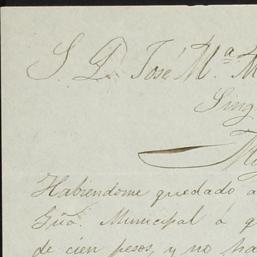 S. D. José M.ª M
Sing
Habiendome quedado a
Municipal á q
de cien pesos, y no ha